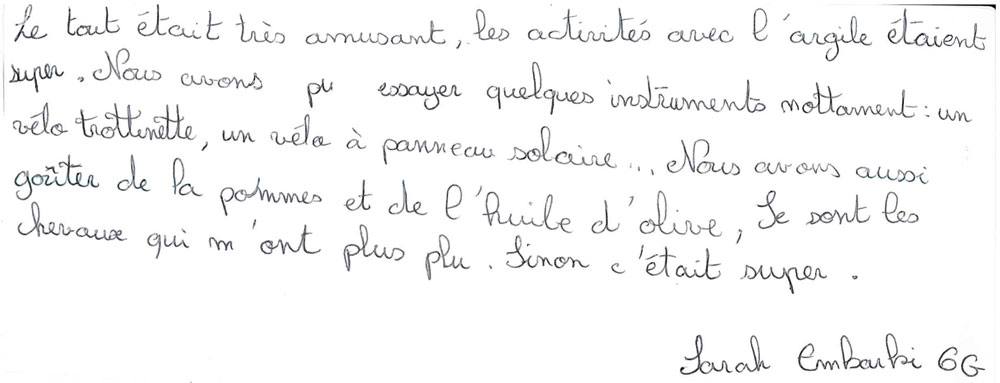 Le tout était très amusant, les activités avec l'argile étaient
super. Nous avons pu essayer quelques instruments nottament : un
vélo trottinette, un vélo à panneau solaire... Nous avons aussi
goûter de la pommes et de l'huile d'olive, Se sont les
chevaux qui m'ont plus plu. Sinon c'était super.
Sarah Embarki 6G